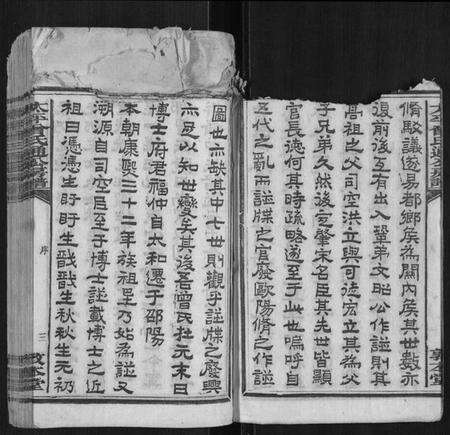 脩駁議遂易都鄉矦為關內矦其世數亦
復前後互有出入鞏弟文昭公作譜則其
高祖之父司空洪立與可徒宏立其為父
子兄弟久然後定肇末名臣其先世皆顯
官長德何其時疏略遂至于此也嗚呼自
五代之亂而譜牒之官廢歐陽脩之作譜
圖也亦缺其中七世則觀乎譜牒之廢興
亦足以知世變矣其後吾曾氏在元末曰
博士府君福仲自太和遷于邵陽
本朝康熙三十二年族祖乃始為譜又
溯源自司空臣至于博士譜載博士之近
祖曰憑憑生盱盱生戩戩生秋秋生元初
序
三
敦本堂
敦本堂